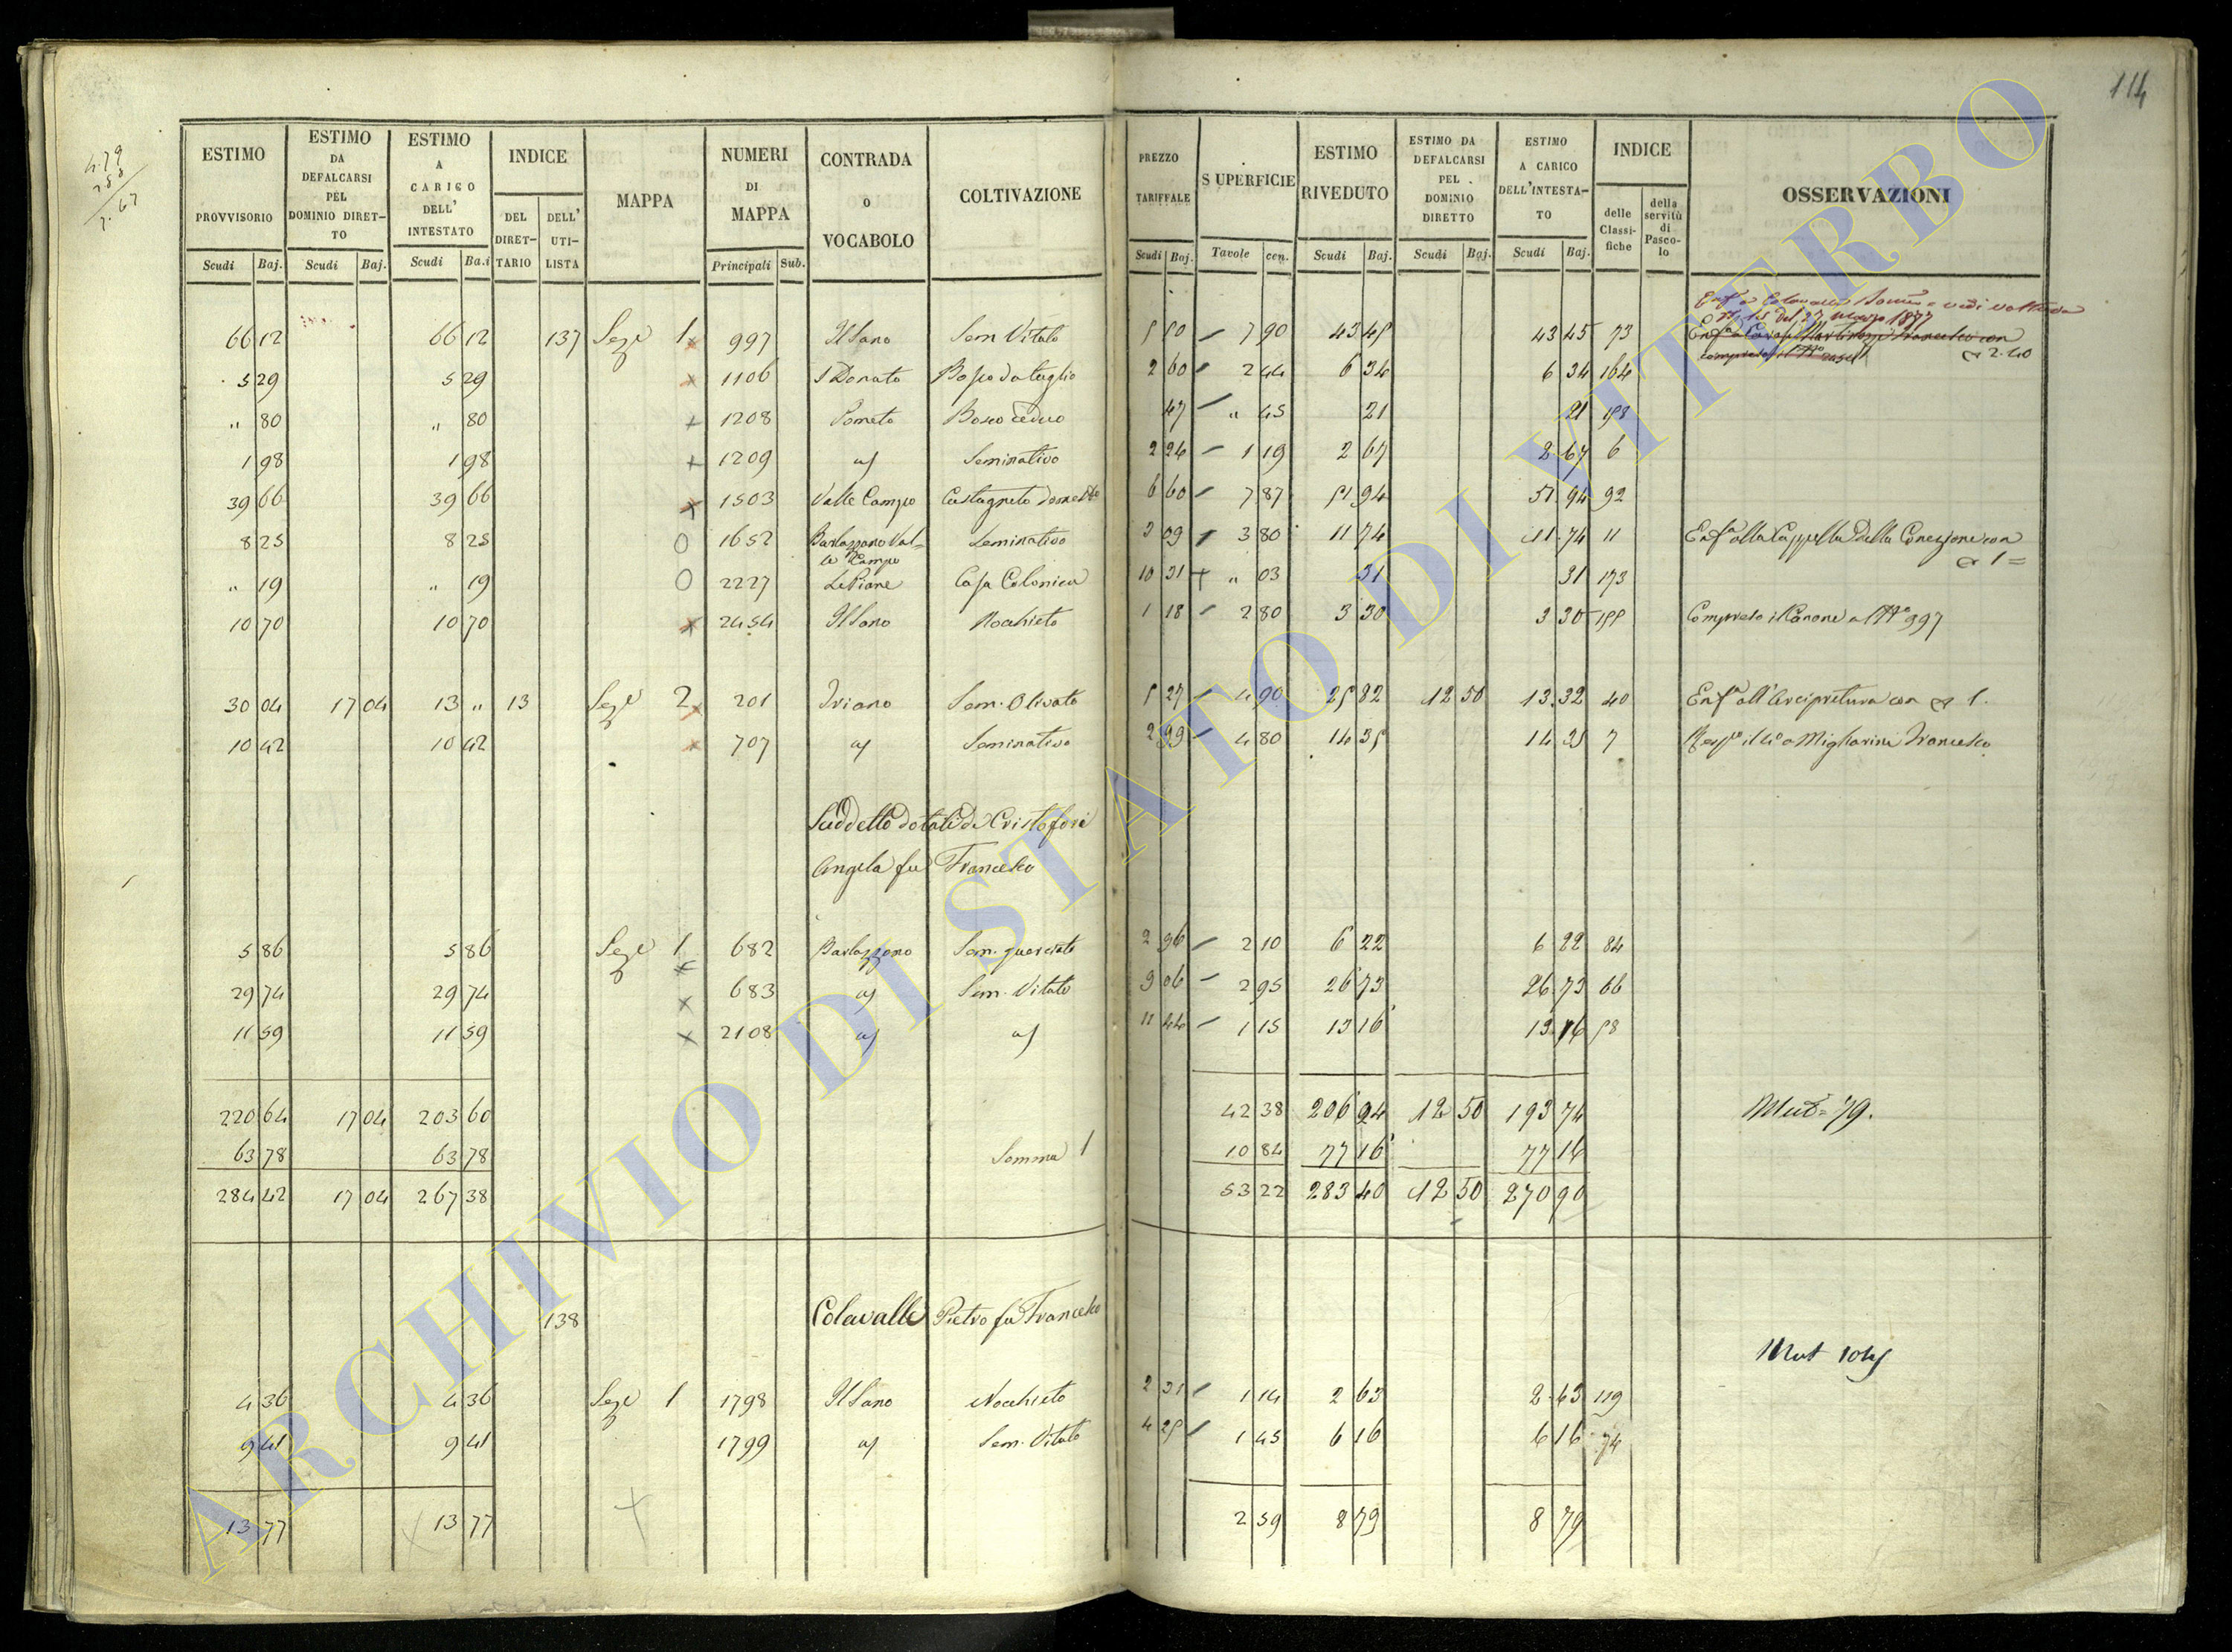 114
4.79
2 88
7.67
ESTIMO PROVVISORIO Scudi Baj.
ESTIMO DA DEFALCARSI PEL DOMINIO DIRET-TO Scudi Baj.
ESTIMO A CARICO DELL' INTESTATO Scudi Ba.i
INDICE DEL DIRET-TARIO DELL' UTI-LISTA
MAPPA
NUMERI DI MAPPA Principali Sub.
CONTRADA O VOCABOLO
COLTIVAZIONE
PREZZO TARIFFALE Scudi Baj.
SUPERFICIE Tavole cen.
ESTIMO RIVEDUTO Scudi Baj.
ESTIMO DA DEFALCARSI PEL DOMINIO DIRETTO Scudi Baj.
ESTIMO A CARICO DELL'INTESTA-TO Scudi Baj.
INDICE delle Classi-fiche della servitù di Pasco-lo
OSSERVAZIONI
vedi voltura
N. 15 del 27 marzo 1877
66 12 66 12 137 Sez.e 1 x 997 Il Sano Sem Vitato 5 50 7 90 43 45 43 45 73
2.40
5 29 5 29 x 1106 S Donato Bosco da taglio 2 60 2 44 6 34 6 34 164
" 80 " 80 x 1208 Pometo Bosco ceduo 47 " 45 21 21 158
1 98 1 98 x 1209 a/ Seminativo 2 24 1 19 2 67 2 67 6
39 66 39 66 x 1503 Valle Campo Castagneto domest.o 6 60 7 87 51 94 51 94 92
8 25 8 25 O 1652 Barlozzano Val-le Campo Seminativo 3 09 3 80 11 74 11 74 11 Enf.a alla Cappella della Concezione con
1 =
" 19 " 19 O 2227 Le Piane Casa Colonica 10 31 " 03 31 31 173
10 70 10 70 x 2454 Il Sano Nocchieto 1 18 2 80 3 30 3 30 155 Compreso il Canone al N.o 997
30 04 17 04 13 " 13 Sez.e 2 x 201 Iriano Sem. Olivato 5 27 4 90 25 82 12 50 13 32 40 Enf.a all'Arcipretura con 1.
10 42 10 42 x 707 a/ Seminativo 2 99 4 80 14 35 14 35 7 Migliorini Francesco
Suddetto dotali di Cristofori
Angela fu Francesco
5 86 5 86 Sez.e 1 x 682 Barlozzano Sem. querciato 2 96 2 10 6 22 6 22 84
29 74 29 74 x 683 a/ Sem. Vitato 9 06 2 95 26 73 26 73 66
11 59 11 59 x 2108 a/ a/ 11 44 1 15 13 16 13 16 58
220 64 17 04 203 60 42 38 206 94 12 50 193 74 Mut= 79.
63 78 63 78 Somma 1 10 84 77 16 77 16
284 42 17 04 267 38 53 22 283 40 12 50 270 90
138 Colavalle Pietro fu Francesco
Mut
4 36 4 36 Sez.e 1 1798 Il Sano Nocchieto 2 31 1 14 2 63 2 63 119
9 41 9 41 1799 a/ Sem. Vitato 4 25 1 45 6 16 6 16 74
13 77 13 77 2 59 8 79 8 79
ARCHIVIO DI STATO DI VITERBO